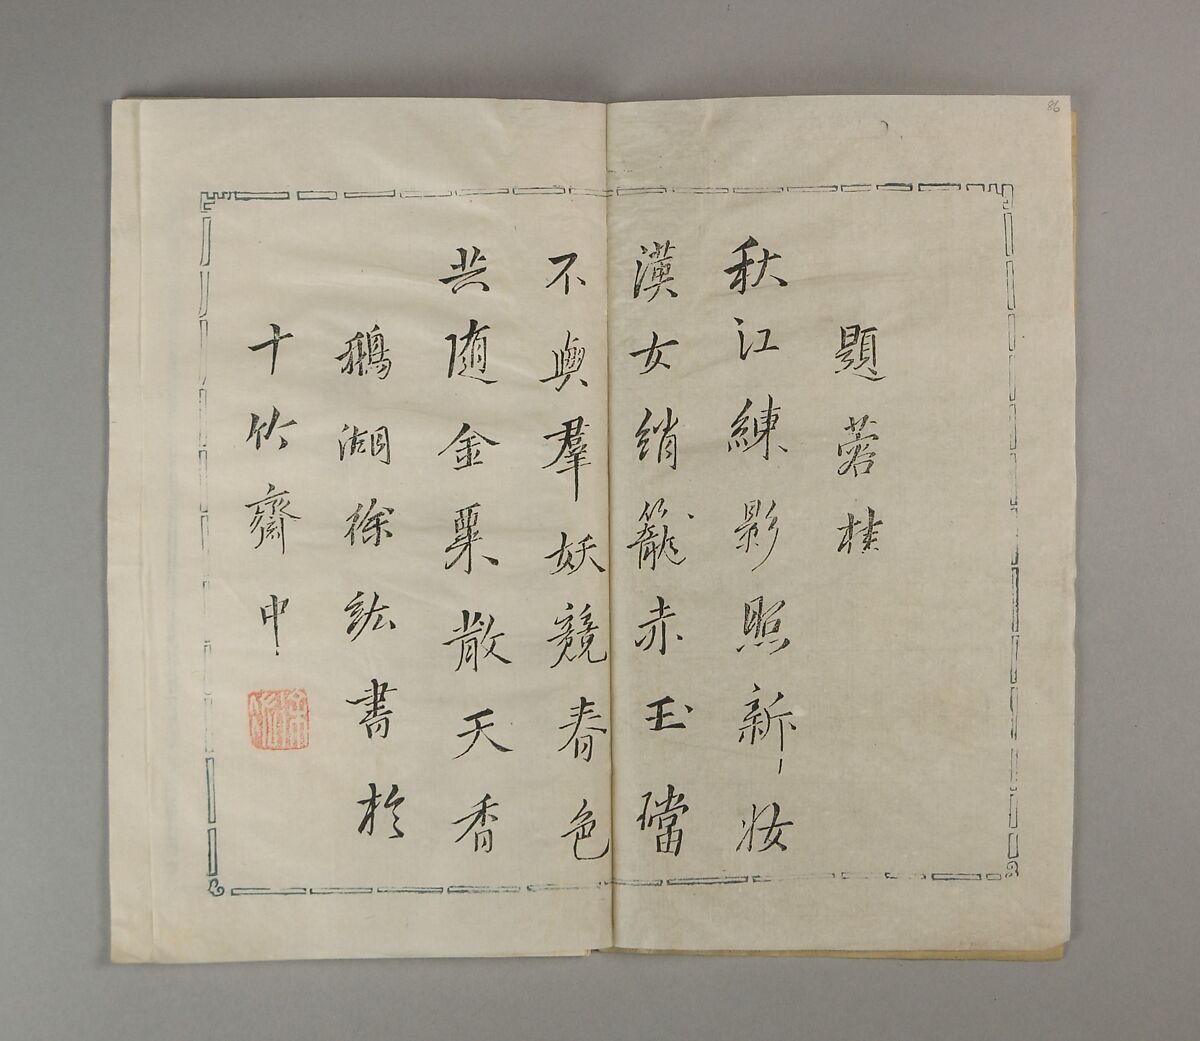 題蓉桂
秋江練影照新妝
漢女綃籠赤玉璫
不與羣妖競春色
共隨金粟散天香
鵝湖徐紘書於
十竹齋中
86